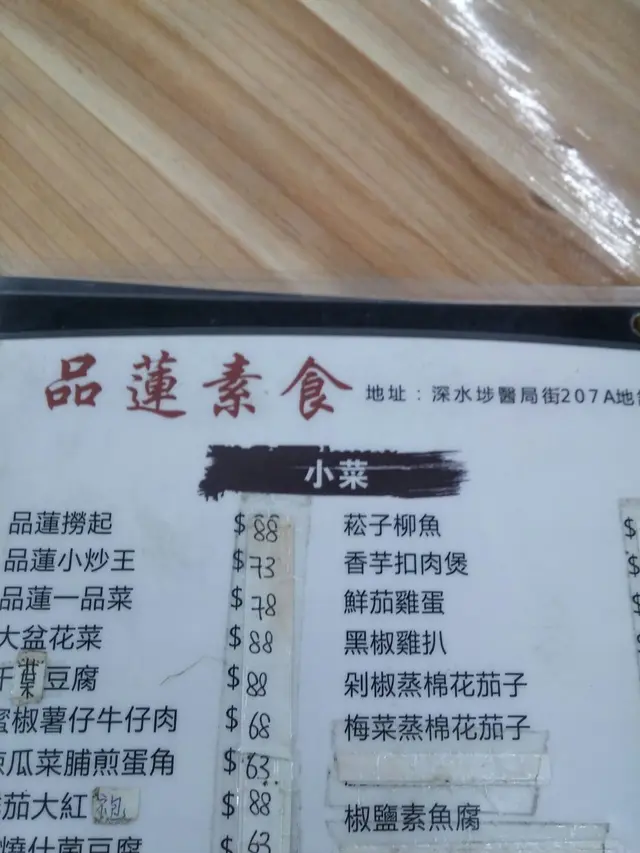 品蓮素食 地址：深水埗醫局街207A地
小菜
品蓮撈起 $88
品蓮小炒王 $73
品蓮一品菜 $78
大盆花菜 $88
豆腐 $88
椒薯仔牛仔肉 $68
瓜菜脯煎蛋角 $63
茄大紅 $88
燒什菌豆腐 $63
菘子柳魚 $
香芋扣肉煲 $
鮮茄雞蛋 $
黑椒雞扒
剁椒蒸棉花茄子
梅菜蒸棉花茄子
椒鹽素魚腐